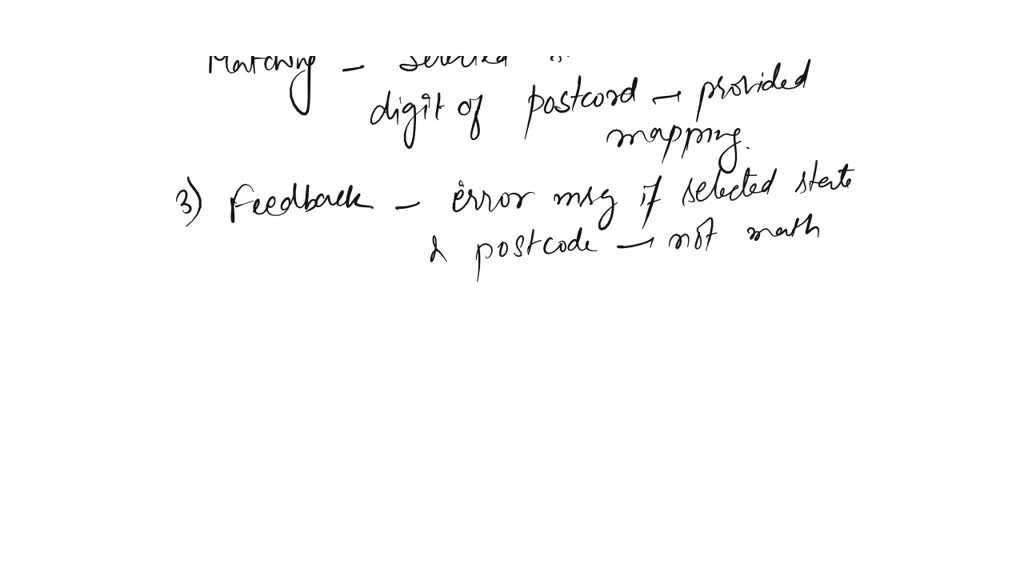 Matching –
digit of postcord → provided
mapping.
3) Feedback – error msg if selected state
& postcode → not math